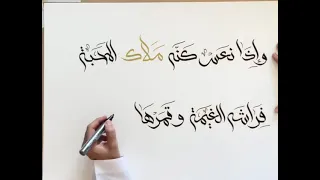 وإذا نعس كنه ملاك المحبة
فراشه الغيمة وقمرها